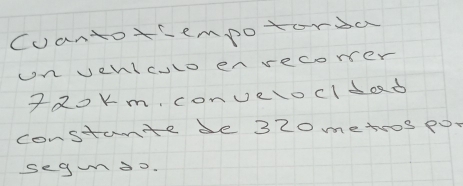 Cuanto tiempo tarda
un vehiculo en recorrer
720 Km. con velocidad
constante de 320 metros por
segundo.